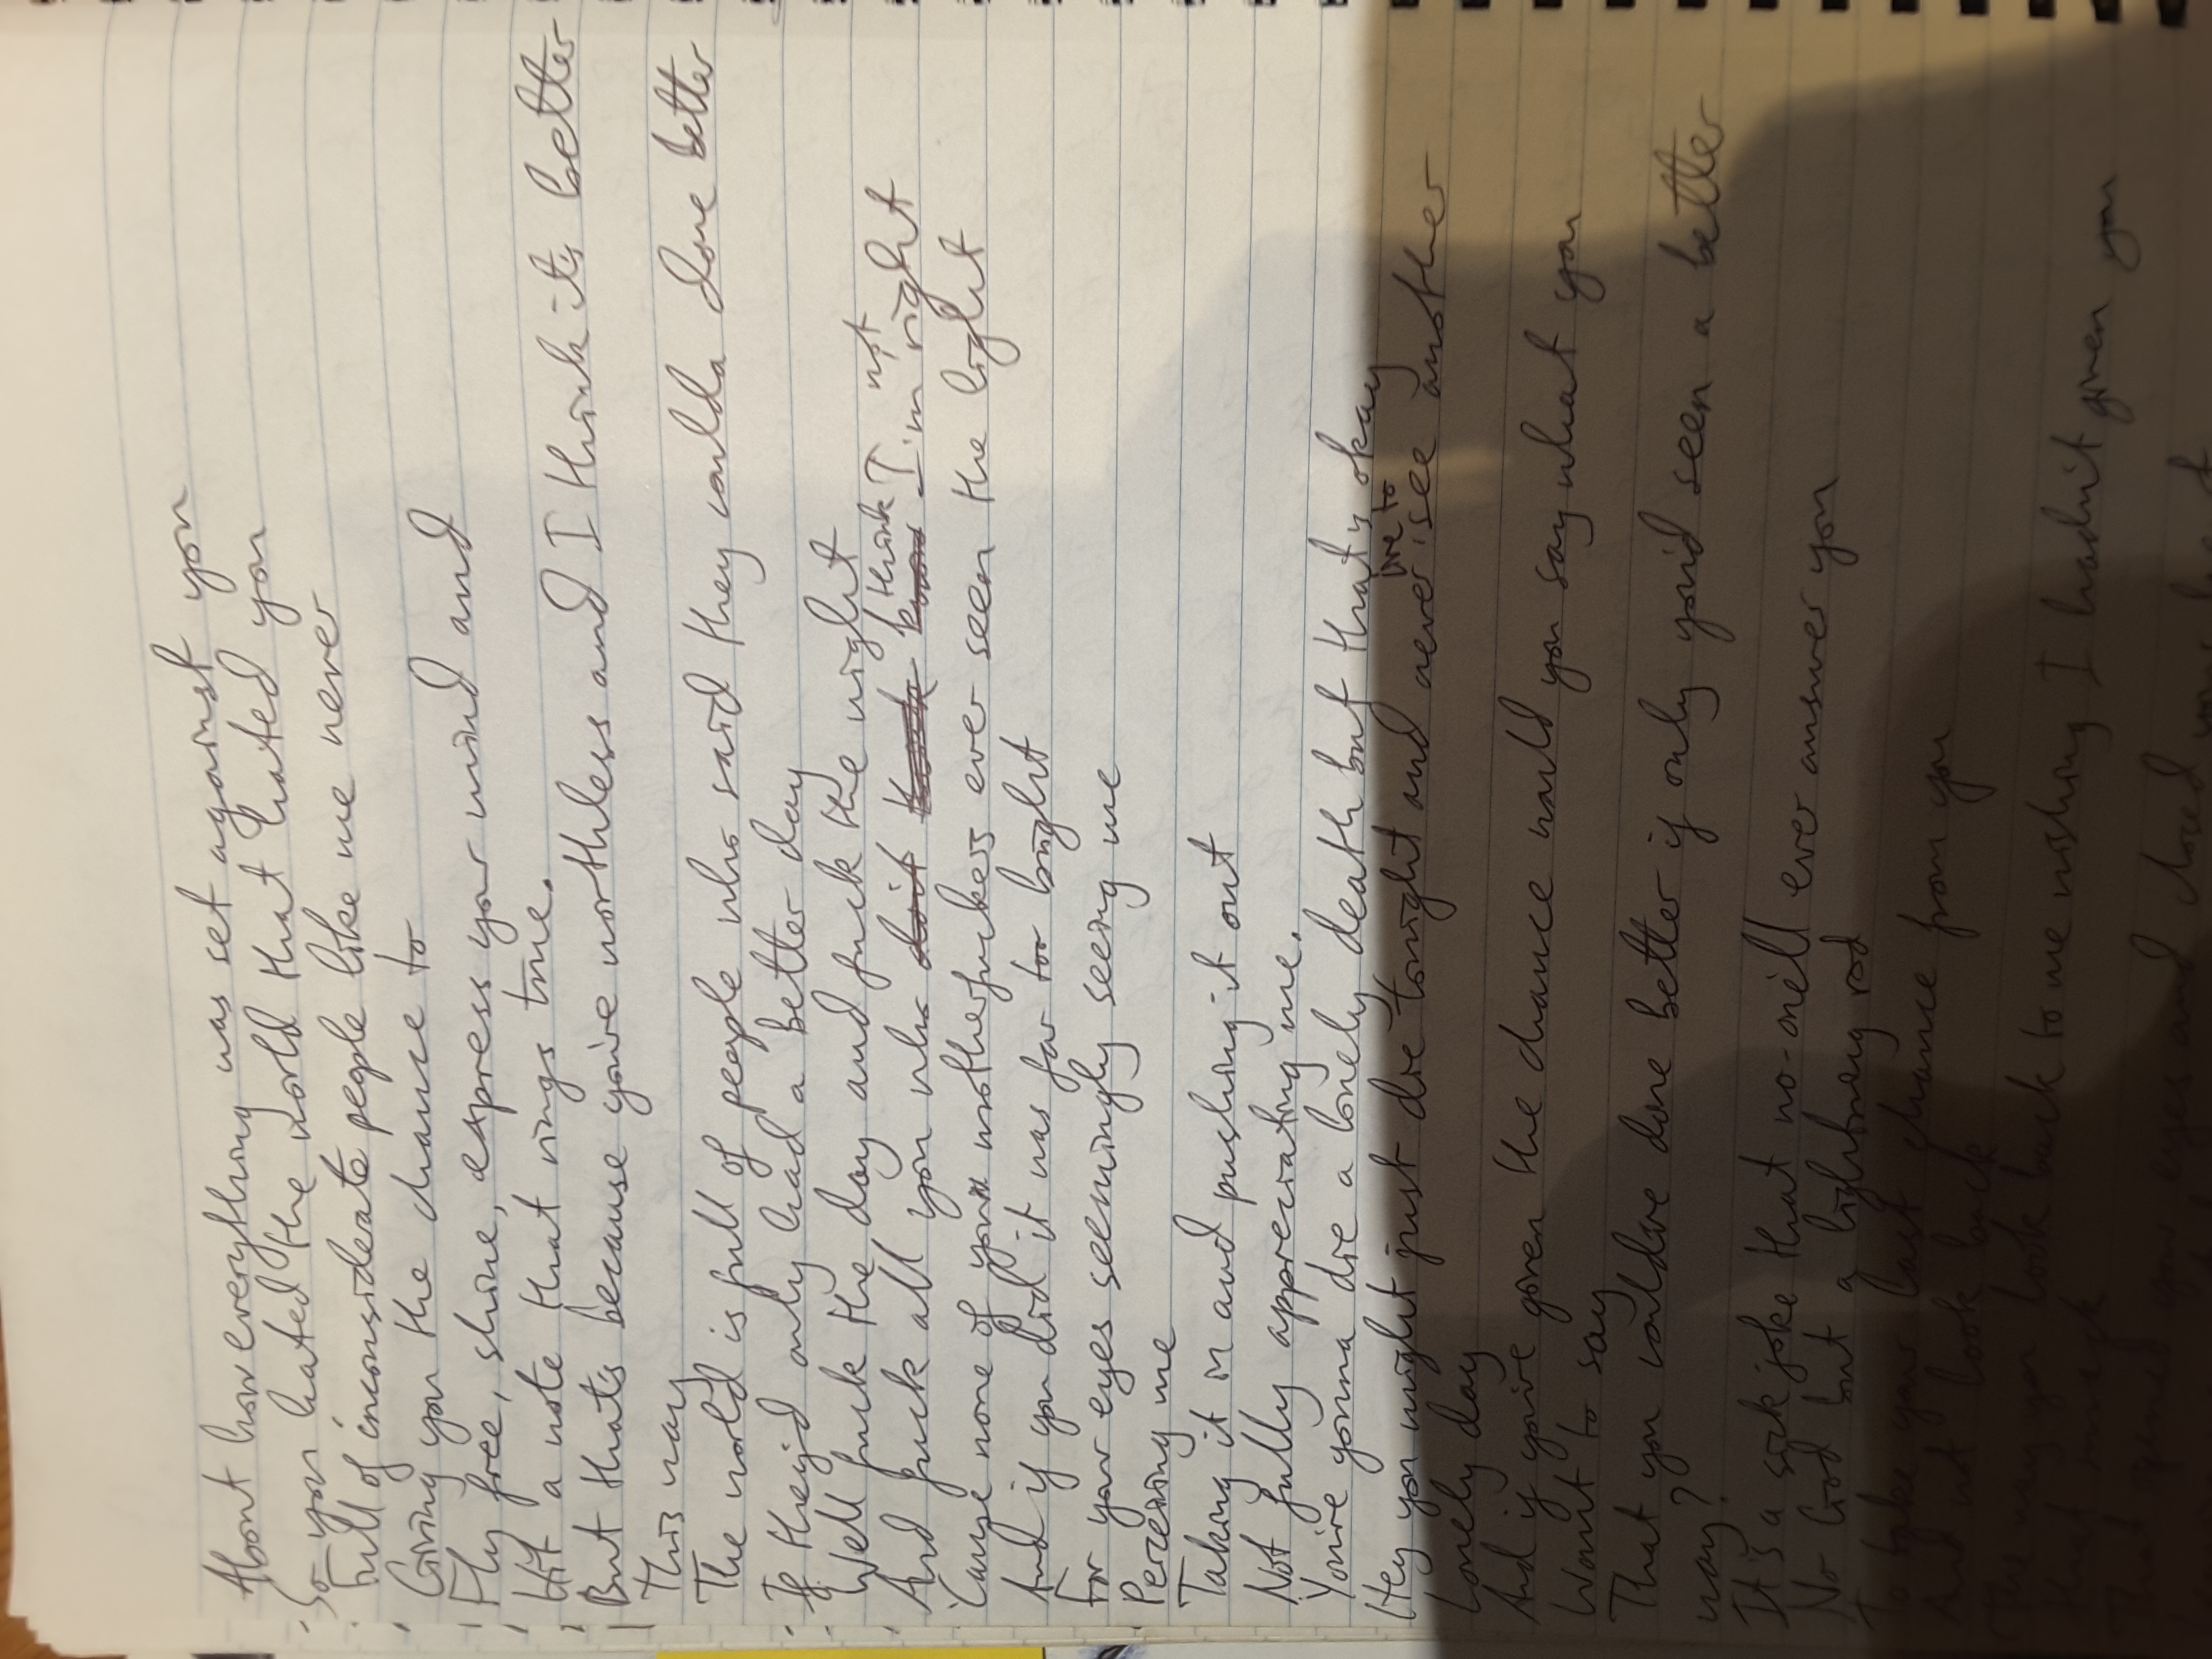 About how everything was set against you
So you hated the world that hated you
Full of inconsiderate people like me never
Giving you the chance to
Fly free, shine, express your mind and
Hit a note that rings true.
But that's because you're worthless and I think it's better
This way
The world is full of people who said they coulda done better
If they'd only had a better day
Well fuck the day and fuck the night
And fuck all you who don't think know think I'm not right
'Cause none of you motherfuckers ever seen the light
And if you did it was far too bright
For your eyes seemingly seeing me
Perceiving me
Taking it in and pushing it out
Not fully appreciating me.
You're gonna die a lonely death but that's okay
Hey you might just die tonight and never live to see another
Lonely day
And if you're given the chance would you say what you
Want to say
That you could've done better if only you'd seen a better
way?
It's a sick joke that no-one'll ever answer you
No God but a lightning rod
To take your last chance from you
And not look back
The way you look back to me wishing I hadn't given you
that
That opened your eyes and closed your